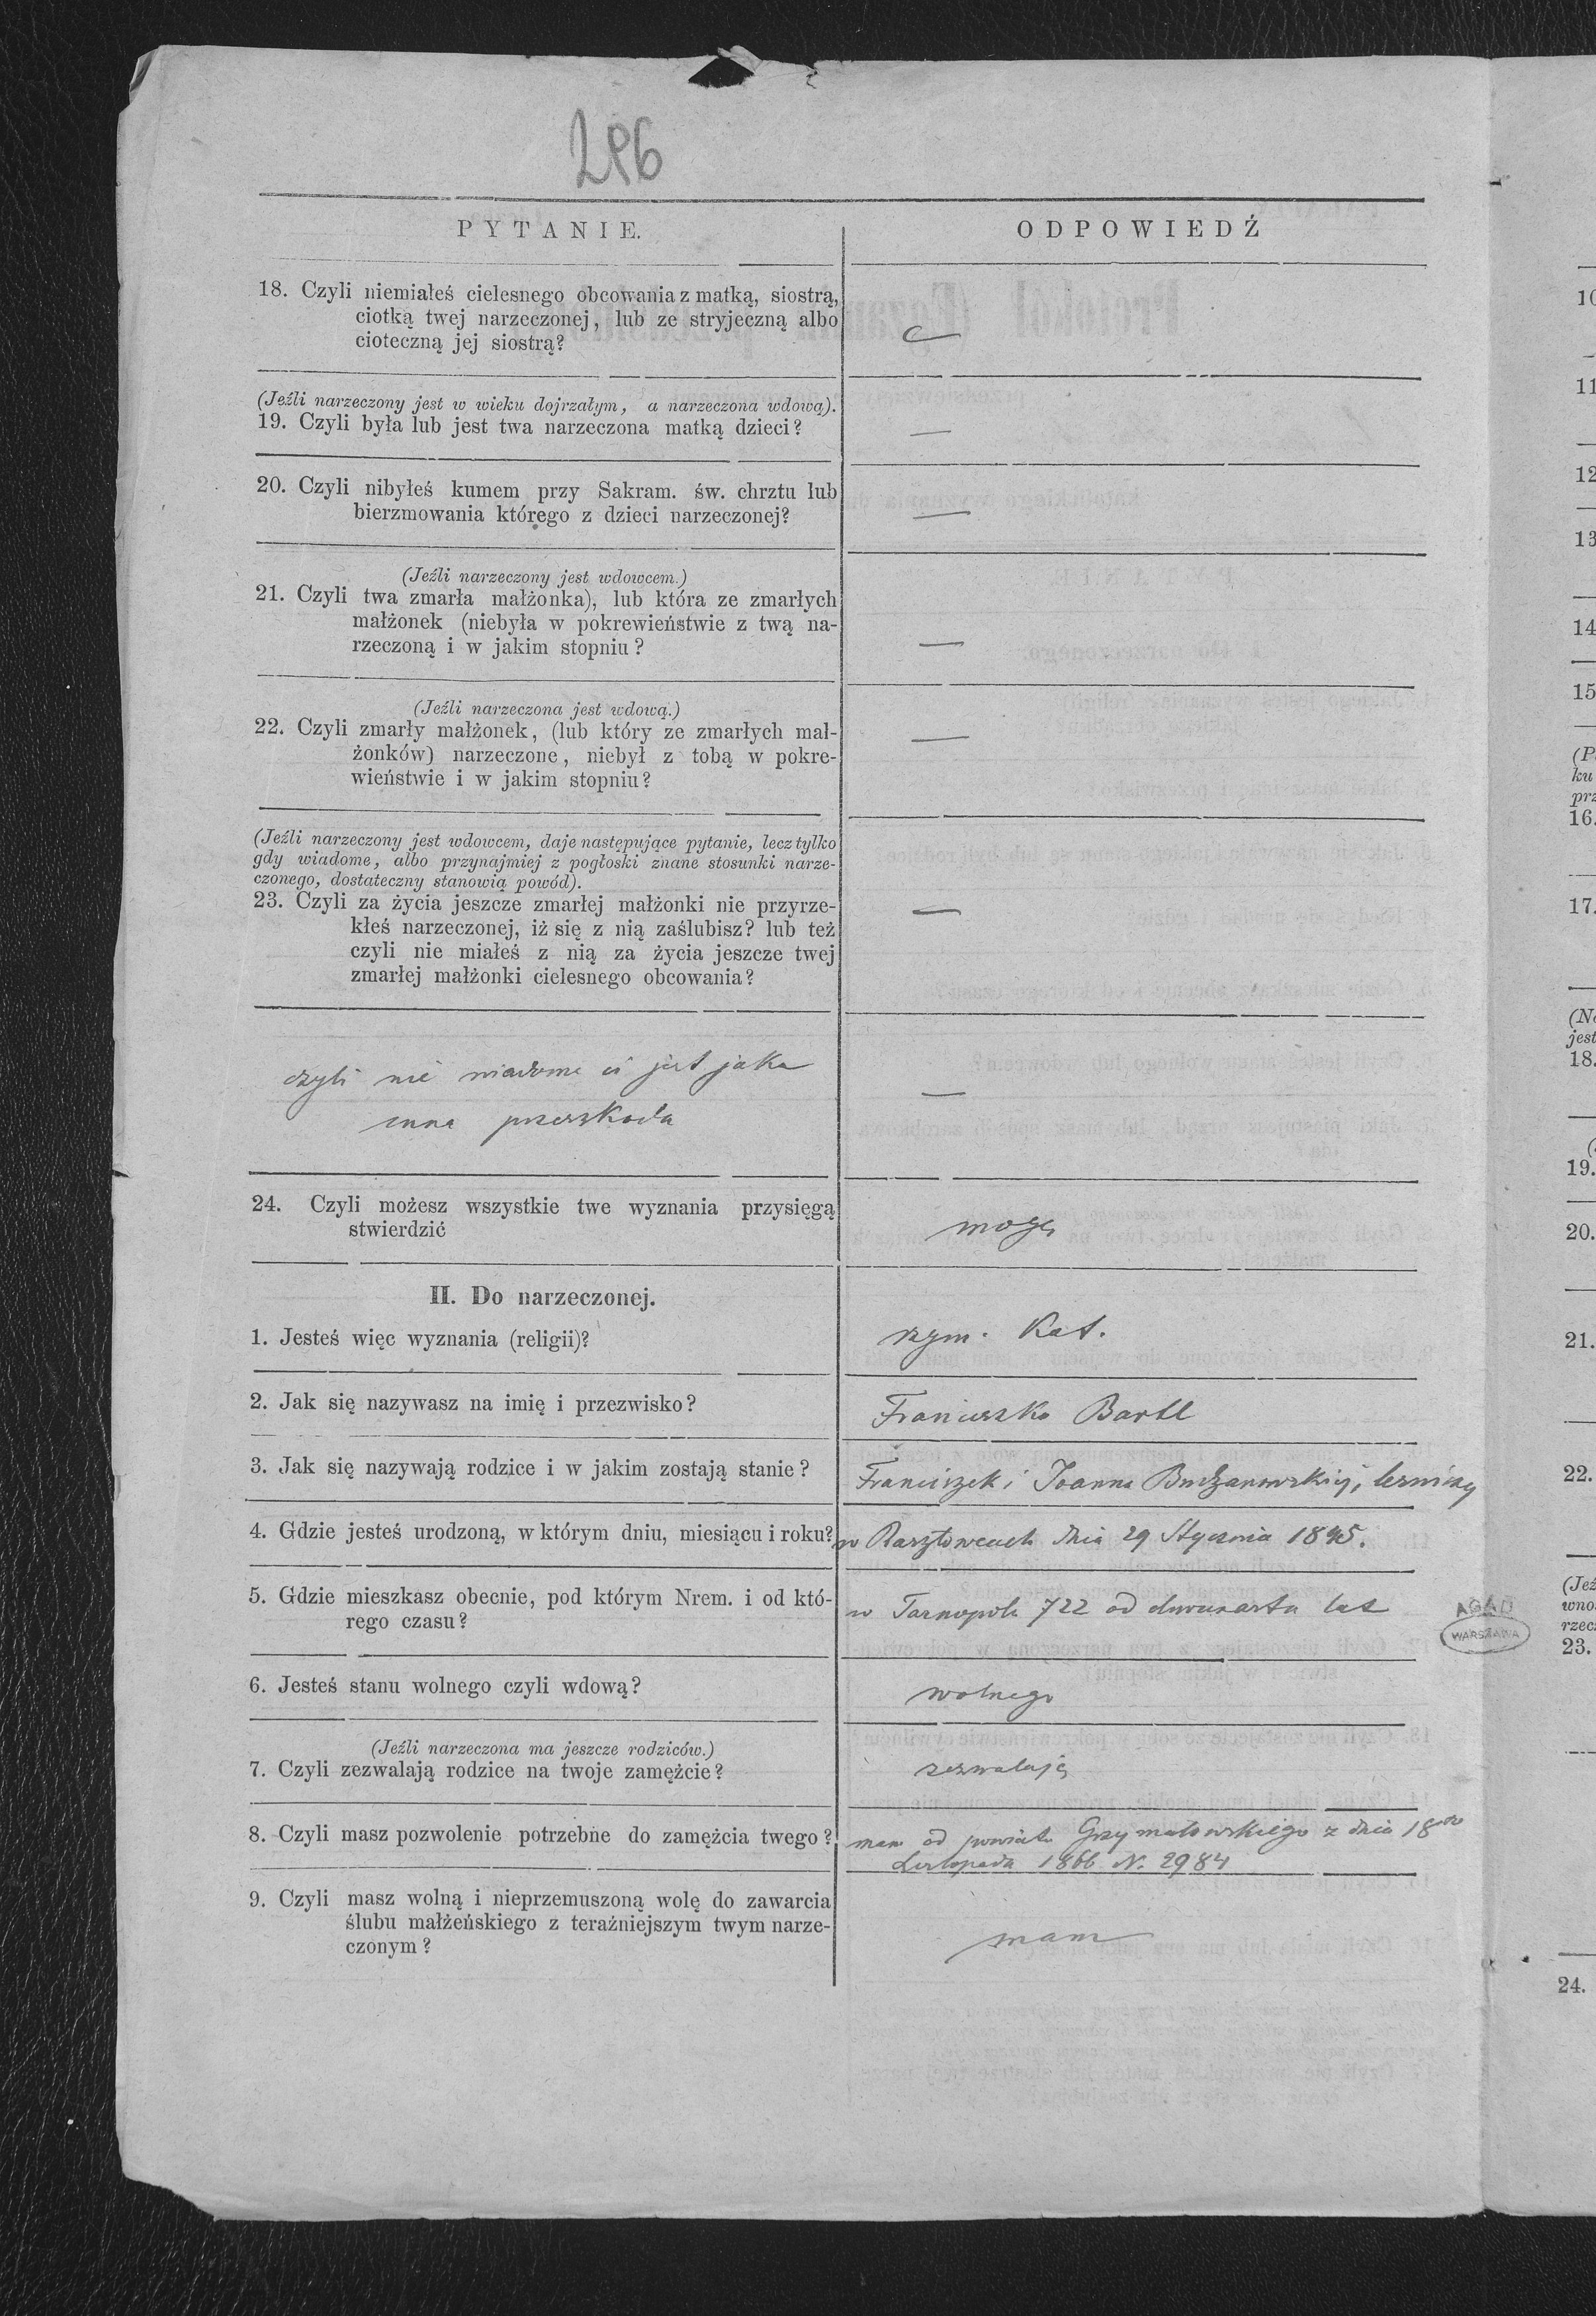 296
PYTANIE.
ODPOWIEDŹ
18. Czyli niemiałeś cielesnego obcowania z matką, siostrą,
ciotką twej narzeczonej, lub ze stryjeczną albo
cioteczną jej siostrą?
—
(Jeźli narzeczony jest w wieku dojrzałym, a narzeczona wdową).
19. Czyli była lub jest twa narzeczona matką dzieci?
—
20. Czyli nibyłeś kumem przy Sakram. św. chrztu lub
bierzmowania którego z dzieci narzeczonej?
—
(Jeźli narzeczony jest wdowcem.)
21. Czyli twa zmarła małżonka), lub która ze zmarłych
małżonek (niebyła w pokrewieństwie z twą na-
rzeczoną i w jakim stopniu?
—
(Jeźli narzeczona jest wdową.)
22. Czyli zmarły małżonek, (lub który ze zmarłych mał-
żonków) narzeczone, niebył z tobą w pokre-
wieństwie i w jakim stopniu?
—
(Jeźli narzeczony jest wdowcem, daje następujące pytanie, lecz tylko
gdy wiadome, albo przynajmiej z pogłoski znane stosunki narze-
czonego, dostateczny stanowią powód).
23. Czyli za życia jeszcze zmarłej małżonki nie przyrze-
kłeś narzeczonej, iż się z nią zaślubisz? lub też
czyli nie miałeś z nią za życia jeszcze twej
zmarłej małżonki cielesnego obcowania?
—
czyli nie wiadome ci jest jaka
inna przeszkoda
—
24. Czyli możesz wszystkie twe wyznania przysięgą
stwierdzić
mogę
II. Do narzeczonej.
1. Jesteś więc wyznania (religii)?
rzym. Kat.
2. Jak się nazywasz na imię i przezwisko?
Franciszka Bartl
3. Jak się nazywają rodzice i w jakim zostają stanie?
Franciszek i Joanna
4. Gdzie jesteś urodzoną, w którym dniu, miesiącu i roku?
w Rasztowcach dnia 29 Stycznia 1845.
5. Gdzie mieszkasz obecnie, pod którym Nrem. i od któ-
rego czasu?
w Tarnopolu 722 od dwunastu lat
AGAD
WARSZAWA
6. Jesteś stanu wolnego czyli wdową?
wolnego
(Jeźli narzeczona ma jeszcze rodziców.)
7. Czyli zezwalają rodzice na twoje zamężcie?
zezwalają
8. Czyli masz pozwolenie potrzebne do zamężcia twego?
mam od powiatu Grzymałowskiego z dnia 18go
Listopada 1866 N. 2984
9. Czyli masz wolną i nieprzemuszoną wolę do zawarcia
ślubu małżeńskiego z teraźniejszym twym narze-
czonym?
mam
10
11
12
13
14
15
16.
17.
18.
19.
20.
21.
22.
23.
24.